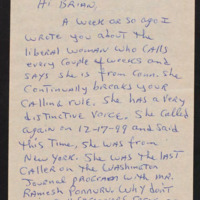 Hi Brian,
A week or so ago I
wrote you about the
liberal woman who calls
every couple of weeks and
says she is from Conn. She
continually breaks your
calling rule. She has a very
distinctive voice. She called
again on 12-17-99 and said
this time, she was from
New York. She was the last
caller on the Washington
Journal program with Mr.
Ramesh Ponnuru. Why don't